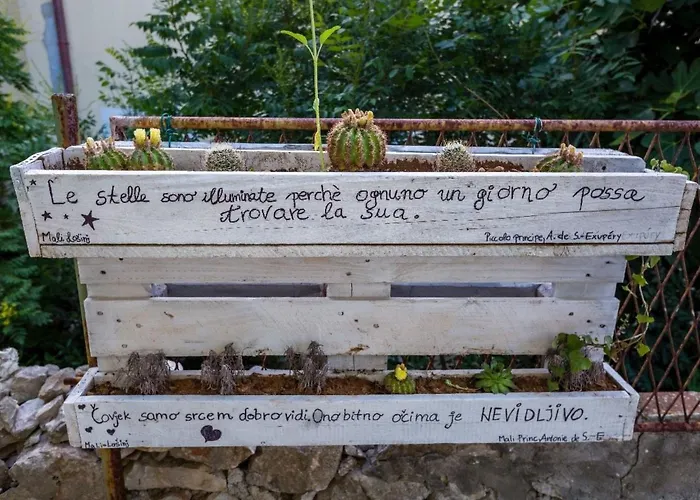 Le stelle sono illuminate perchè ognuno un giorno possa
trovare la sua.
Mali Lošinj
Piccolo principe, A. de S.-Exupéry
Čovjek samo srcem dobro vidi. Ono bitno očima je NEVIDLJIVO.
Mali Lošinj
Mali Princ, Antoine de S.-E